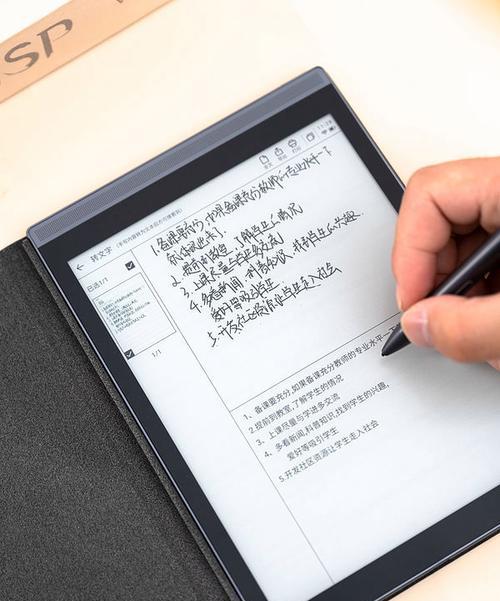 SP
11:28
全文
导出
打印
← 转文字 (手写内容转为文本后方可搜索到)
已选1/1
1/1
1.备课要充分,如果备课充分教师的专业水平一下
就体现出来了.
2.提前到教室,了解学生的情况
3.上课尽量与学生多交流
4.多看新闻,科普知识,找到学生的兴趣.
爱好等吸引学生
5.开发社区资源让学生走入社会
1、备课要充分,如果备课充分教师的专业水平一下
2.提前到教室,了解学生的情况
3、上课尽量与学进多交流
4、多看新闻,科普知识,找到学生的兴趣,
爱好等吸引学生
5.开发社区资源让学生走入社会